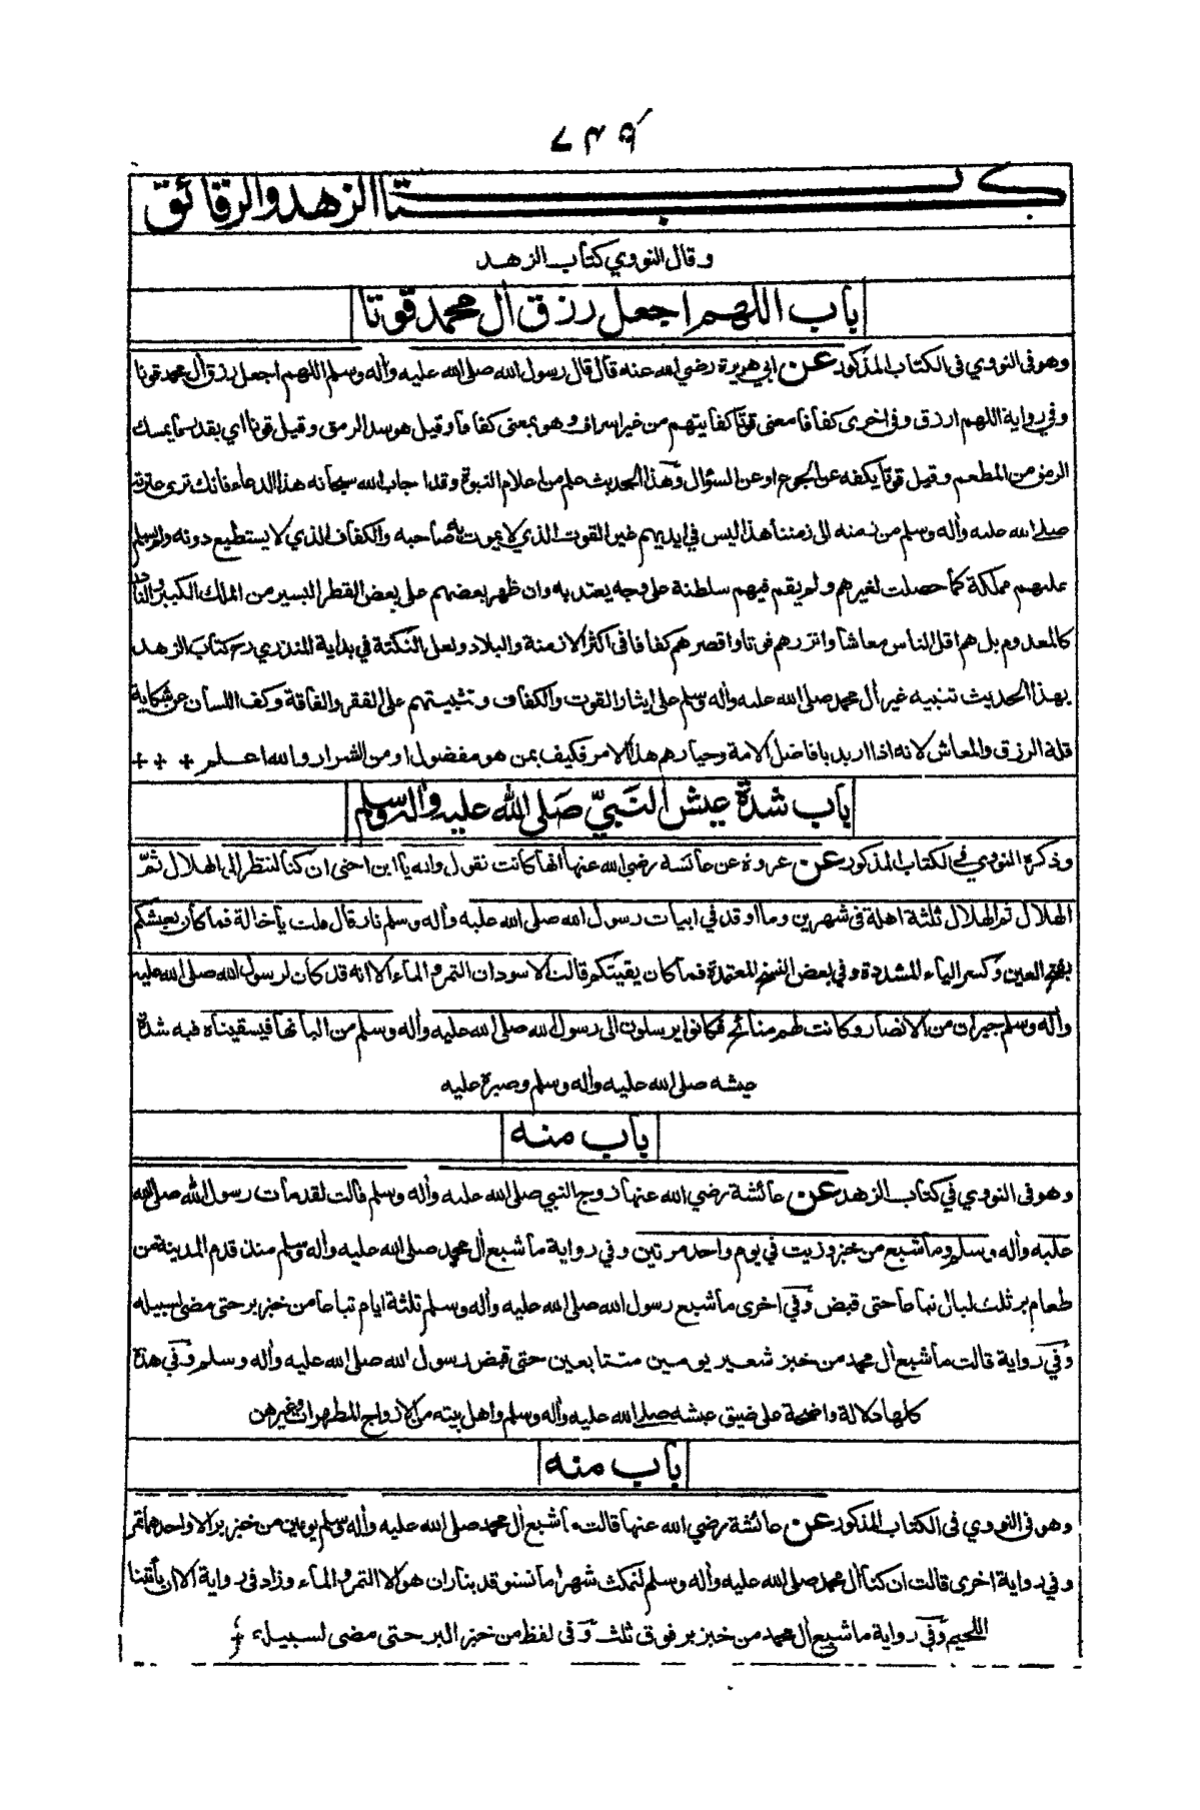 ٧٤٩
كتاب الزهد والرقائق
وقال النووي كتاب الزهد
باب اللهم اجعل رزق آل محمد قوتا
وهو فى النووي فى الكتاب المذكور عن ابي هريرة رضي الله عنه قال قال رسول الله صلى الله عليه وأله وسلم اللهم اجعل رزق أل محمد قوتا
وفي رواية اللهم ارزق وفى اخرى كفافا معنى قوتا كفايتهم من غير اسراف وهو بمعنى كفافا وقيل هو سد الرمق وقيل قوتا اي بقدر ما يمسك
الرمق من المطعم وقيل قوتا يكفه عن الجوع او عن السؤال وهذا الحديث علم من اعلام النبوة وقد اجاب الله سبحانه هذا الدعاء فانك ترى عترته
صلى الله عليه وأله وسلم من زمنه الى زمننا هذا ليس في ايديهم غير القوت الذي لا يموت به صاحبه والكفاف الذي لا يستطيع دونه ولم تسلم
عليهم مملكة كما حصلت لغيرهم ولم يقم فيهم سلطنة على وجه يعتد به وان ظهر بعضهم على بعض القطر اليسير من الملك الكبير والنادر
كالمعدوم بل هم اقل الناس معاشا وانزرهم قوتا واقصرهم كفافا فى اكثر الازمنة والبلاد ولعل النكتة في بداية المنذري رح كتاب الزهد
بهذا الحديث تنبيه غير أل محمد صلى الله عليه وأله وسلم على ايثار القوت والكفاف وتثبيتهم على الفقر والفاقة وكف اللسان عن شكاية
قلة الرزق والمعاش لانه اذا اريد بافاضل الامة وخيارهم هذا الامر فكيف بمن هو مفضول او من الشرار والله اعلم + + +
باب شدة عيش النبي صلى الله عليه وأله وسلم
وذكره النووي في الكتاب المذكور عن عروة عن عائشة رضي الله عنها انها كانت تقول والله يا ابن اختى ان كنا لننظر الى الهلال ثم
الهلال ثم الهلال ثلثة اهلة فى شهرين وما اوقد في ابيات رسول الله صلى الله عليه وأله وسلم نار قال قلت يا خالة فما كان يعيشكم
بفتح العين وكسر الياء المشددة وفي بعض النسخ المعتمدة فما كان يقيتكم قالت الاسودان التمر والماء الا انه قد كان لرسول الله صلى الله عليه
وأله وسلم جيران من الانصار وكانت لهم منائح فكانوا يرسلون الى رسول الله صلى الله عليه وأله وسلم من البانها فيسقيناه فيه شدة
عيشه صلى الله عليه وأله وسلم وصبره عليه
باب منه
وهو فى النووي في كتاب الزهد عن عائشة رضي الله عنها زوج النبي صلى الله عليه وأله وسلم قالت لقد مات رسول الله صلى الله
عليه وأله وسلم وما شبع من خبز وزيت في يوم واحد مرتين وفي رواية ما شبع أل محمد صلى الله عليه وأله وسلم منذ قدم المدينة من
طعام بر ثلث ليال تباعا حتى قبض وفي اخرى ما شبع رسول الله صلى الله عليه وأله وسلم ثلثة ايام تباعا من خبز بر حتى مضى لسبيله
وفي رواية قالت ما شبع أل محمد من خبز شعير يومين متتابعين حتى قبض رسول الله صلى الله عليه وأله وسلم وفي هذه
كلها دلالة واضحة على ضيق عيشه صلى الله عليه وأله وسلم واهل بيته من الازواج المطهرات وغيرهن
باب منه
وهو فى النووي فى الكتاب المذكور عن عائشة رضي الله عنها قالت ما شبع أل محمد صلى الله عليه وأله وسلم يومين من خبز بر الا واحدهما تمر
وفي رواية اخرى قالت ان كنا أل محمد صلى الله عليه وأله وسلم لنمكث شهرا ما نستوقد بنار ان هو الا التمر والماء وزاد فى رواية الا ان يأتينا
اللحيم وفي رواية ما شبع أل محمد من خبز بر فوق ثلث وفى لفظ من خبز البر حتى مضى لسبيله +